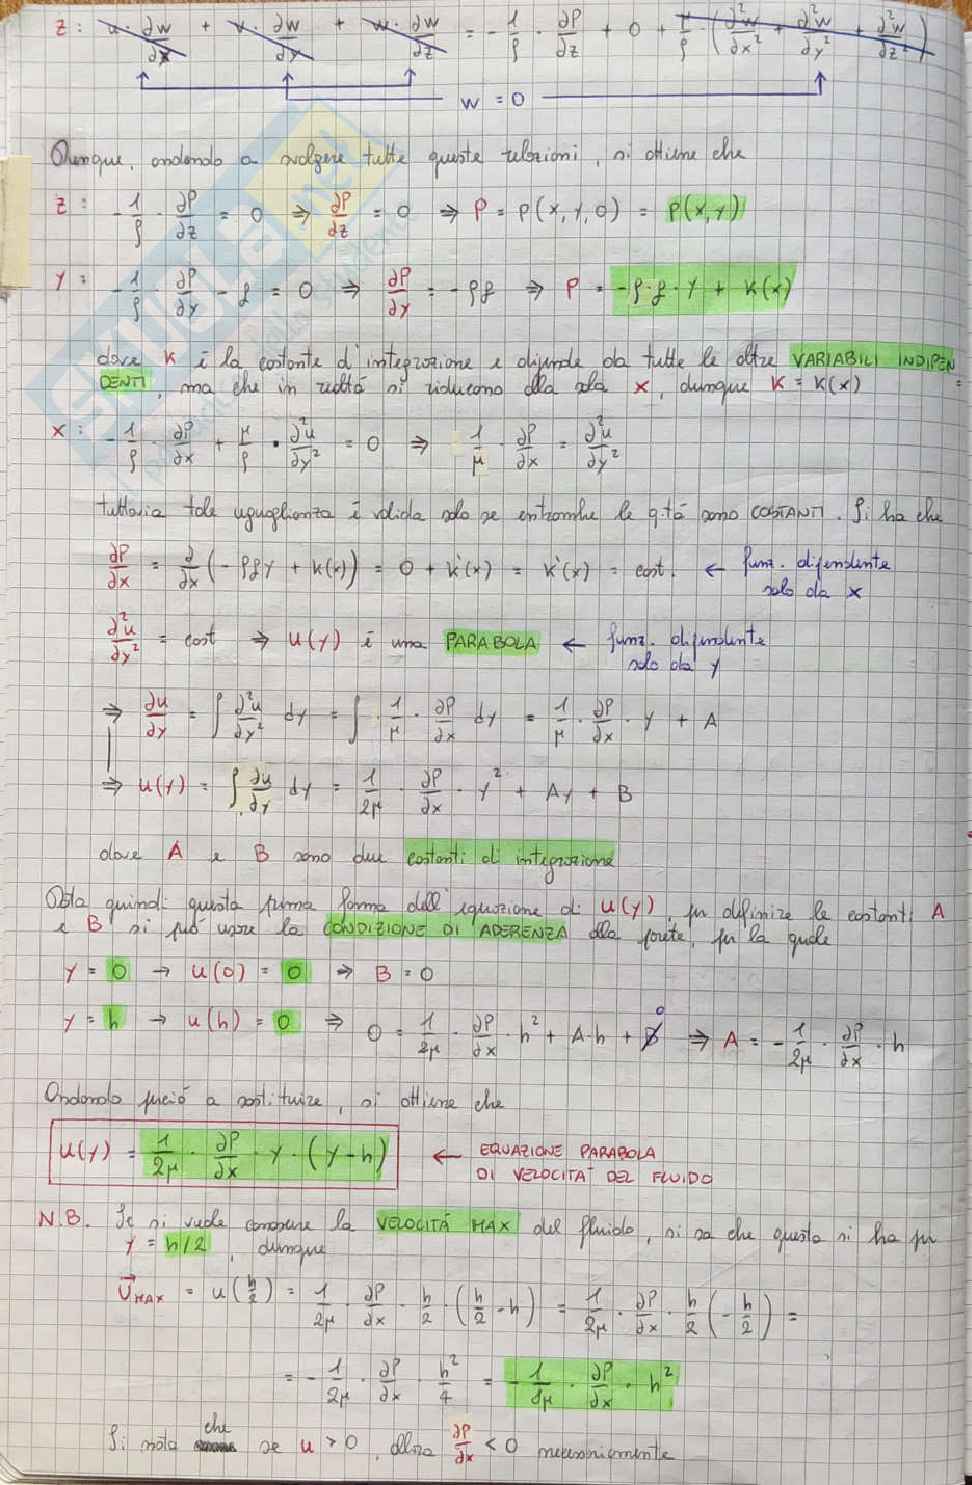 z: u·∂w/∂x + v·∂w/∂y + w·∂w/∂z = -1/ρ · ∂P/∂z + 0 + μ/ρ · (∂²w/∂x² + ∂²w/∂y² + ∂²w/∂z²)
w = 0
Dunque, andando a svolgere tutte queste relazioni, si ottiene che
z: -1/ρ · ∂P/∂z = 0 ⇒ ∂P/∂z = 0 ⇒ P = P(x, y, 0) = P(x, y)
y: -1/ρ · ∂P/∂y - g = 0 ⇒ ∂P/∂y = -ρg ⇒ P = -ρ·g·y + K(x)
dove K è la costante d'integrazione e dipende da tutte le altre VARIABILI INDIPEN=
DENTI, ma che in realtà si riducono alla sola x, dunque K = K(x)
x: -1/ρ · ∂P/∂x + μ/ρ · ∂²u/∂y² = 0 ⇒ 1/μ · ∂P/∂x = ∂²u/∂y²
tuttavia tale uguaglianza è valida solo se entrambe le q.tà sono COSTANTI. Si ha che
∂P/∂x = ∂/∂x (-ρgy + K(x)) = 0 + K'(x) = K'(x) = cost. ← funz. dipendente
solo da x
∂²u/∂y² = cost ⇒ u(y) è una PARABOLA ← funz. dipendente
solo da y
⇒ ∂u/∂y = ∫ ∂²u/∂y² dy = ∫ 1/μ · ∂P/∂x dy = 1/μ · ∂P/∂x · y + A
⇒ u(y) = ∫ ∂u/∂y dy = 1/2μ · ∂P/∂x · y² + Ay + B
dove A e B sono due costanti di integrazione
Data quindi questa prima forma dell'equazione di u(y), per definire le costanti A
e B si può usare la CONDIZIONE DI ADERENZA alla parete, per la quale
y = 0 → u(0) = 0 ⇒ B = 0
y = h → u(h) = 0 ⇒ 0 = 1/2μ · ∂P/∂x · h² + A·h + B 0 ⇒ A = -1/2μ · ∂P/∂x · h
Andando perciò a sostituire, si ottiene che
u(y) = 1/2μ · ∂P/∂x · y · (y-h) ← EQUAZIONE PARABOLA
DI VELOCITÀ DEL FLUIDO
N.B. Se si vuole conoscere la VELOCITÀ MAX del fluido, si sa che questa si ha per
y = h/2, dunque
U⃗MAX = u(h/2) = 1/2μ · ∂P/∂x · h/2 · (h/2 - h) = 1/2μ · ∂P/∂x · h/2 (-h/2) =
= -1/2μ · ∂P/∂x · h²/4 = -1/8μ · ∂P/∂x · h²
Si nota che se u > 0, allora ∂P/∂x < 0 necessariamente